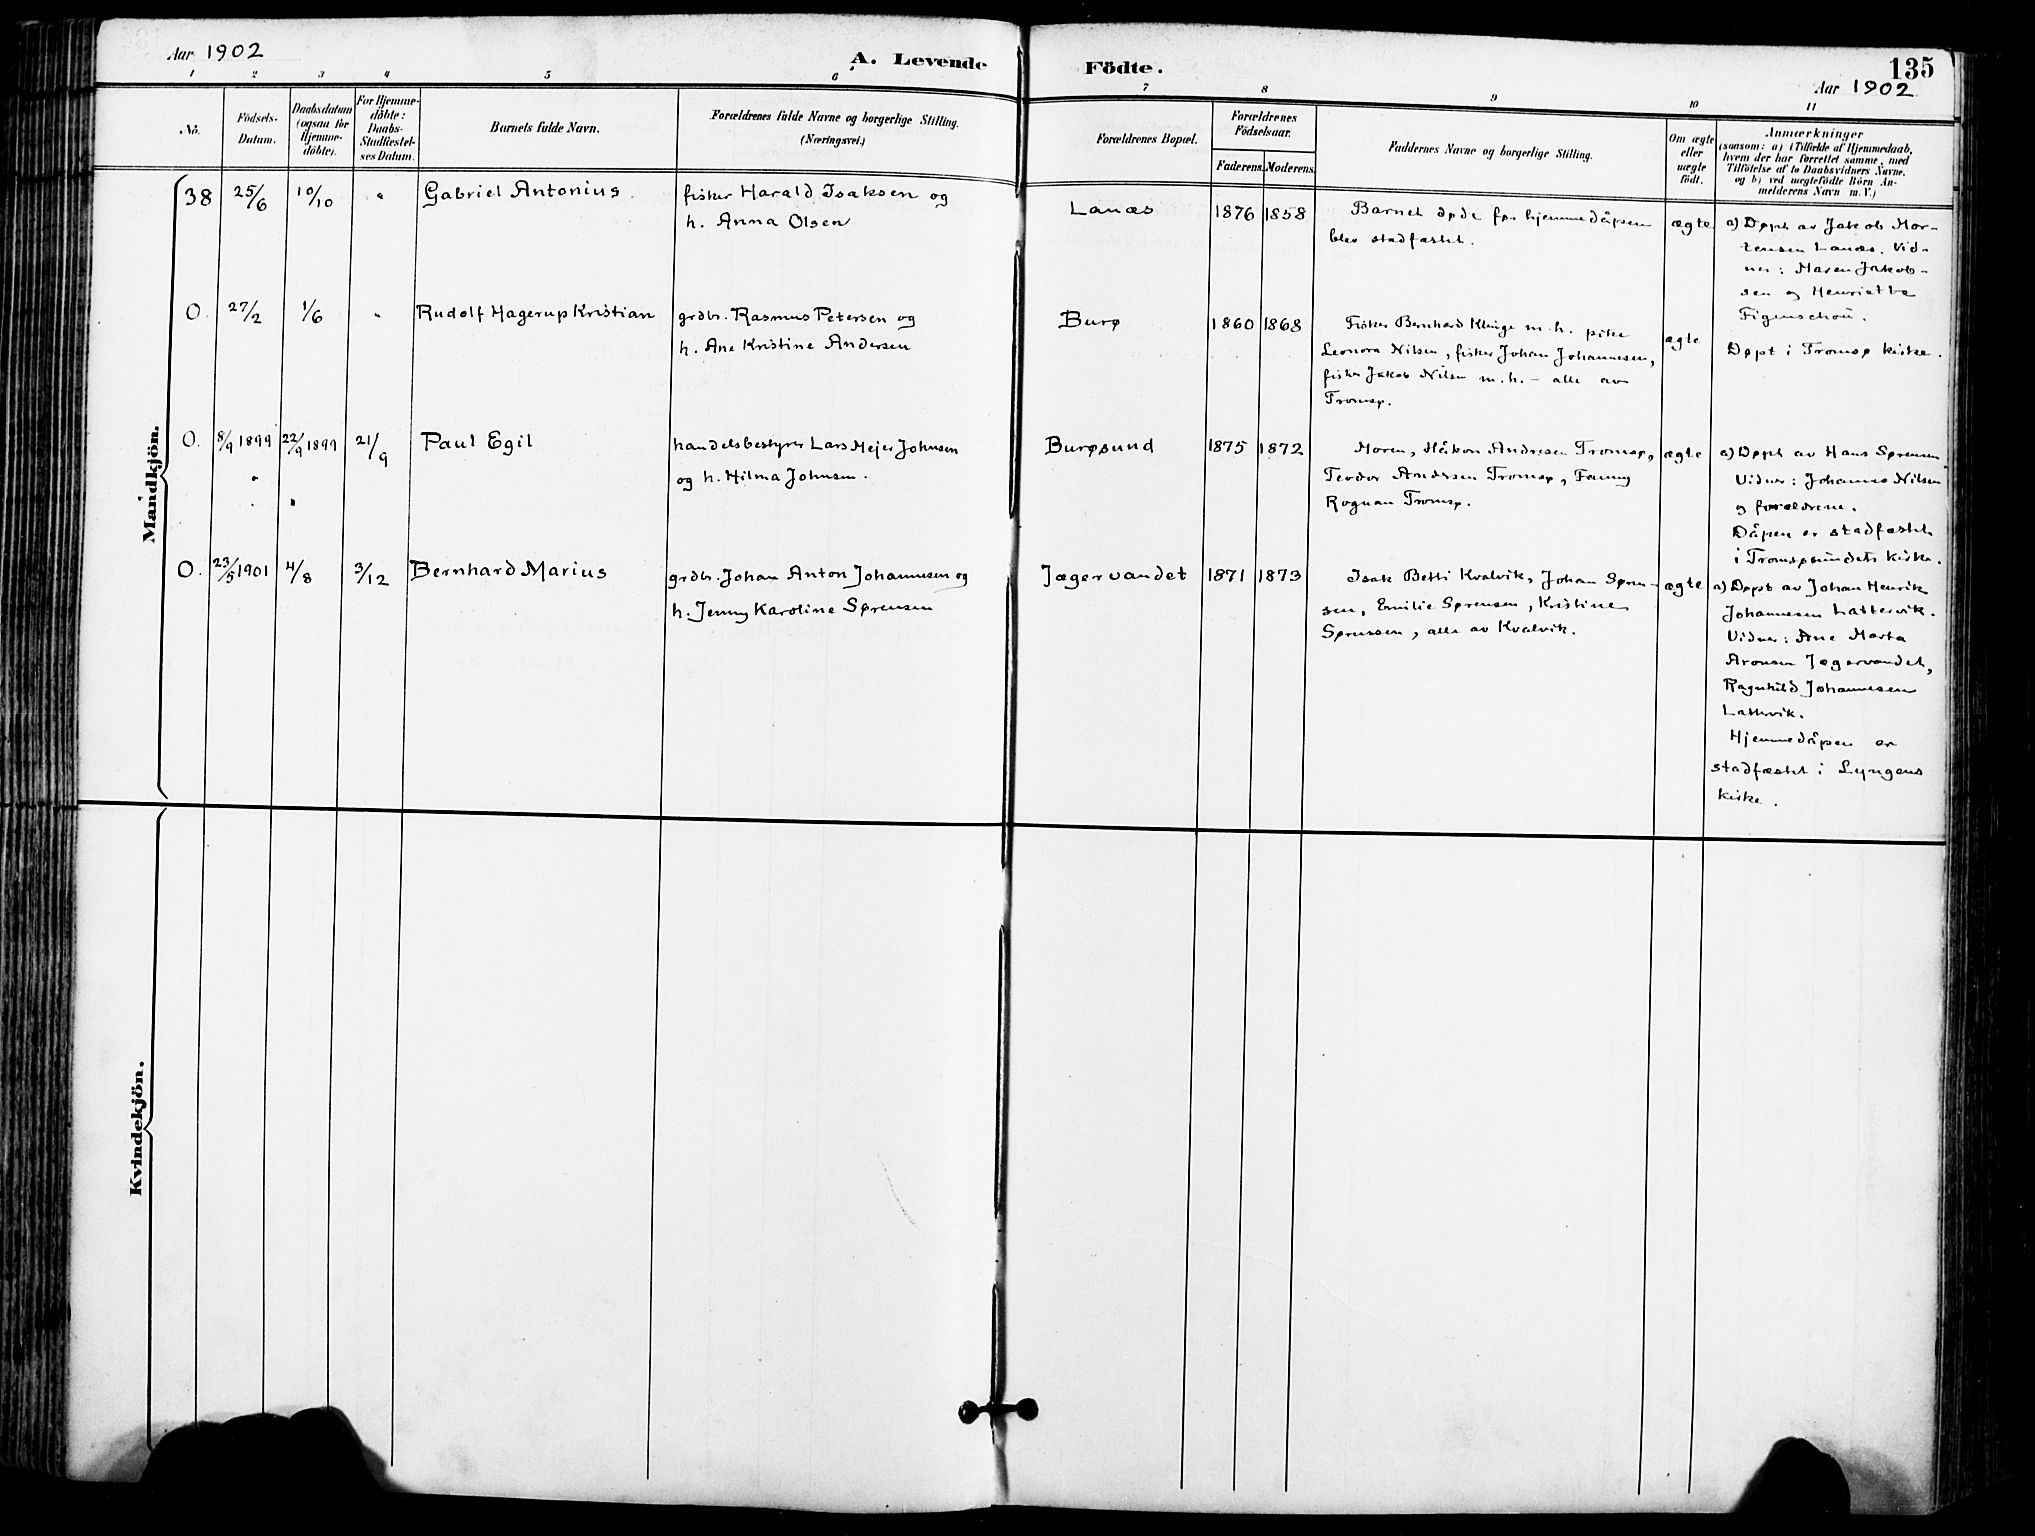 Aar 1902
A. Levende Födte.
135
Aar 1902
1 2 3 4 5 6 7 8 9 10 11
No.
Födsels-
Datum.
Daabsdatum
(ogsaa for
Hjemme-
döbte).
For Hjemme-
döbte:
Daabs-
Stadfæstel-
ses Datum.
Barnets fulde Navn.
Forældrenes fulde Navne og borgerlige Stilling.
(Næringsvei.)
Forældrenes Bopæl.
Forældrenes
Födselsaar.
Faderens. Moderens.
Faddernes Navne og borgerlige Stilling.
Om ægte
eller
uægte
födt.
Anmærkninger
(saasom: a) i Tilfælde af Hjemmedaab,
hvem der har forrettet samme, med
Tilföielse af to Daabsvidners Navne,
og b) ved uægtefödte Börn An-
melderens Navn m. V.)
Mandkjön.
38
25/6
10/10
"
Gabriel Antonius
fisker Harald Isaksen og
h. Anna Olsen
Lanæs
1876 1858
Barnet døde før hjemmedåpen
blev stadfæstet.
ægte
a) Døpt av Jakob Mor-
tensen Lanæs. Vid-
ner: Maren Jakob-
sen og Henriette
Figenschou.
O.
27/2
1/6
"
Rudolf Hagerup Kristian
grdbr. Rasmus Petersen og
h. Ane Kristine Andersen
Burø
1860 1868
Fisker Bernhard Klinge m. h. pike
Leonora Nilsen, fisker Johan Johannesen,
fisker Jakob Nilsen m. h. – alle av
Tromsø.
ægte
Døpt i Tromsø kirke.
O.
8/9 1899
22/9 1899
21/9
Paul Egil
handelsbestyrer Lars Mejer Johnsen
og h. Hilma Johnsen.
Burøsund
1875 1872
Moren, Håkon Andresen Tromsø,
Teodor Andersen Tromsø, Fanny
Rognan Tromsø.
ægte
a) Døpt av Hans Sørensen
Vidner: Johannes Nilsen
og forældrene.
Dåpen er stadfæstet
i Tromsøsundets kirke.
O.
23/5 1901
4/8
3/12
Bernhard Marius
grdbr. Johan Anton Johannesen og
h. Jenny Karoline Sørensen
Jægervandet
1871 1873
Isak Betti Kvalvik, Johan Søren-
sen, Emilie Sørensen, Kristine
Sørensen, alle av Kvalvik.
ægte
a) Døpt av Johan Henrik
Johannesen Lattervik.
Vidner: Ane Marta
Aronsen Jægervandet,
Ragnhild Johannesen
Lattervik.
Hjemmedåpen er
stadfæstet i Lyngens
kirke.
Kvindekjön.